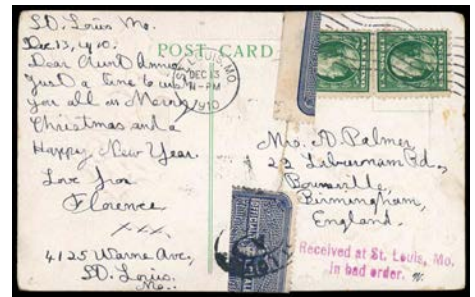 St. Louis Mo.
Dec. 13, 1910.
Dear Aunt Annie,
Just a line to wish
you all a Merry
Christmas and a
Happy New Year.
Love from
Florence
xxx
4125 Warne Ave.,
St. Louis,
Mo.
POST CARD
ST. LOUIS, MO.
DEC 13
11-PM
1910
Mrs. A. Palmer
22 Rd.,
Bournville,
Birmingham,
England.
Received at St. Louis, Mo.
in bad order.